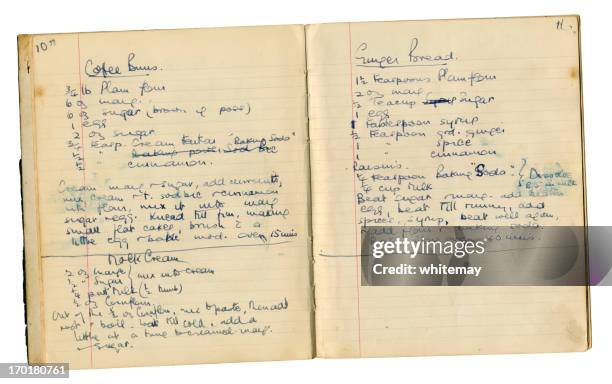 10
Coffee Buns.
3/4 lb Plain flour
6 oz marg.
6 oz sugar (brown if poss)
1 egg
2 oz
1/2 teasp. Cream Tartar "Baking Soda"
cinnamon.
Cream marg & sugar, add currants,
mix cream & t. sod bic & cinnamon
into flour, mix it into marg
sugar & egg. Knead till firm, making
small flat cakes, brush &
little egg & bake mod. oven 15 mins
Mock Cream
2 oz marg } mix into cream
1 " sugar
Milk (
oz Cornflour.
Out of the
& boil. till cold, add a
little at a time to creamed marg.
& sugar.
11.
Ginger Bread.
1 1/2 Teacups Plain flour
2 oz marg
1/2 Teacup sugar
1 egg
1 Tablespoon syrup
1/2 Teaspoon grd. ginger
1 " spice
1 " cinnamon
Raisins.
Teaspoon Baking Soda
1/4 cup milk
Beat sugar & marg. add
egg, beat till runny, add
spice, syrup, beat well again,
add flour & baking soda.
mins.
gettyimages
Credit: whitemay
170180761